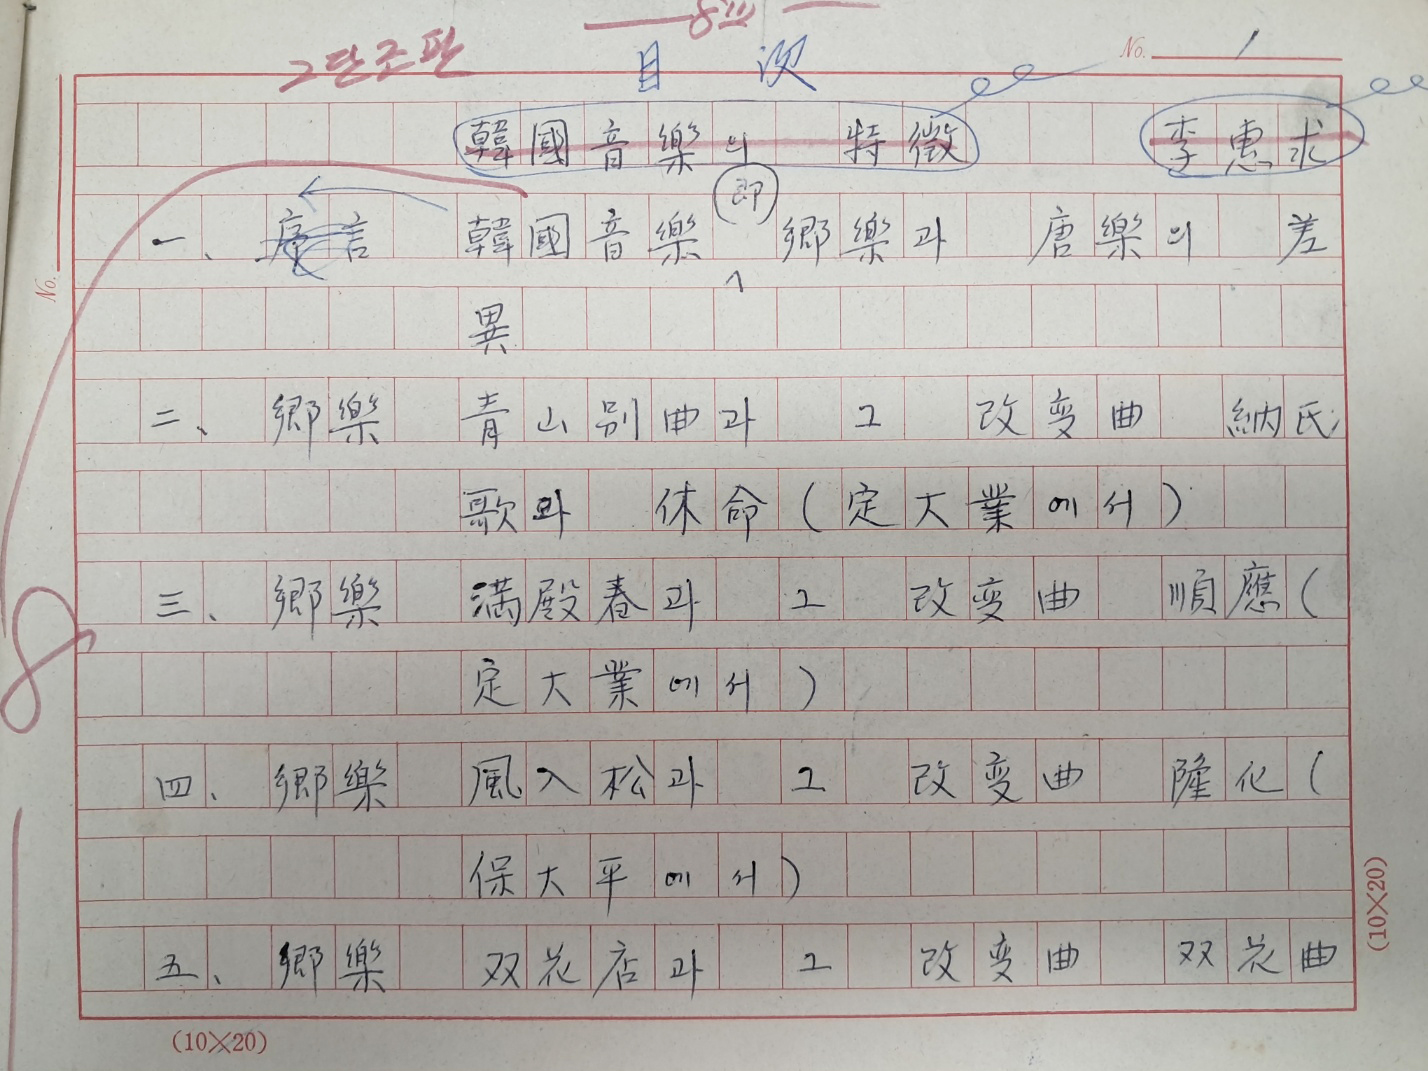 8
2단조판
目 次
No. 1
韓國音樂의 特徵 李惠求
即
一、序言 韓國音樂 鄕樂과 唐樂의 差
異
No.
二、鄕樂 青山別曲과 그 改変曲 納氏
歌와 休命(定大業에서)
三、鄕樂 満殿春과 그 改変曲 順應(
定大業에서)
8
四、鄕樂 風入松과 그 改変曲 隆化(
保大平에서)
五、鄕樂 双花店과 그 改変曲 双花曲
(10×20)
(10×20)